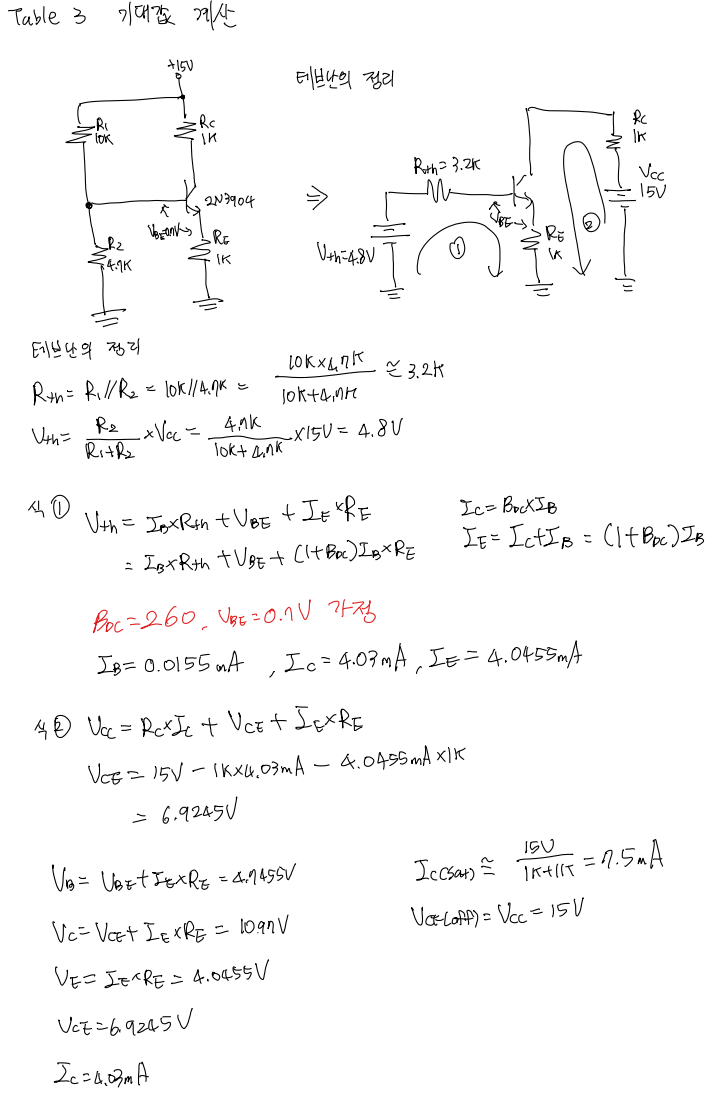 Table 3 기대값 계산
+15V
테브난의 정리
R1
10K
RC
1K
2N3904
VBE=0.7V
R2
4.7K
RE
1K
⇒
Rth=3.2K
Vth=4.8V
VBE
①
RE
1K
②
RC
1K
VCC
15V
테브난의 정리
Rth = R1//R2 = 10K//4.7K = 10K×4.7K / 10K+4.7K ≅ 3.2K
Vth = R2 / R1+R2 ×VCC = 4.7K / 10K+4.7K ×15V = 4.8V
식 ① Vth = IB×Rth + VBE + IE×RE
= IB×Rth + VBE + (1+BDC)IB×RE
IC = BDC×IB
IE = IC+IB = (1+BDC)IB
BDC=260, VBE=0.7V 가정
IB = 0.0155mA , IC = 4.03mA , IE = 4.0455mA
식 ② VCC = RC×IC + VCE + IE×RE
VCE = 15V - 1K×4.03mA - 4.0455mA×1K
= 6.9245V
VB = VBE+IE×RE = 4.7455V
VC = VCE+ IE×RE = 10.97V
VE = IE×RE = 4.0455V
VCE = 6.9245V
IC = 4.03mA
IC(sat) ≅ 15V / 1K+1K = 7.5mA
VCE(off) = VCC = 15V